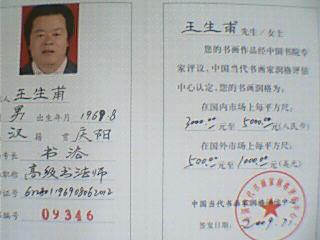 人 王生甫
男 出生年月 1969.8
汉 籍贯 庆阳
号长 书法
高级书法师
编号 09346
王生甫 先生/女士
您的书画作品经中国书院专
家评议,中国当代书画家润格评估
中心认定,您的书画润格为:
在国内市场上每平方尺:
3000.00 元至 5000.00 元(人民币)
在国外市场上每平方尺:
500.00 元至 1000.00 元(美元)
中国当代书画家润格评估中心
签发日期: